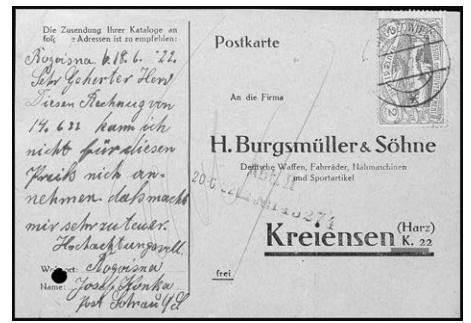 Die Zusendung Ihrer Kataloge an
Adressen ist zu empfehlen:
Rogoisna d. 18.6. 22.
Sehr Geherter Herr
Diesen Rechnug von
14.6 22 kann ich
nicht für diesen
Preiß nich an-
nehmen daß macht
mir sehr zu teuer.
Hochachtungsvoll.
Rogoisna
Name: Josef Konka
Post Sohrau O/S
Postkarte
An die Firma
H. Burgsmüller & Söhne
Deutsche Waffen, Fahrräder, Nähmaschinen
und Sportartikel
ABT. II
148274
Kreiensen (Harz)
K. 22
frei